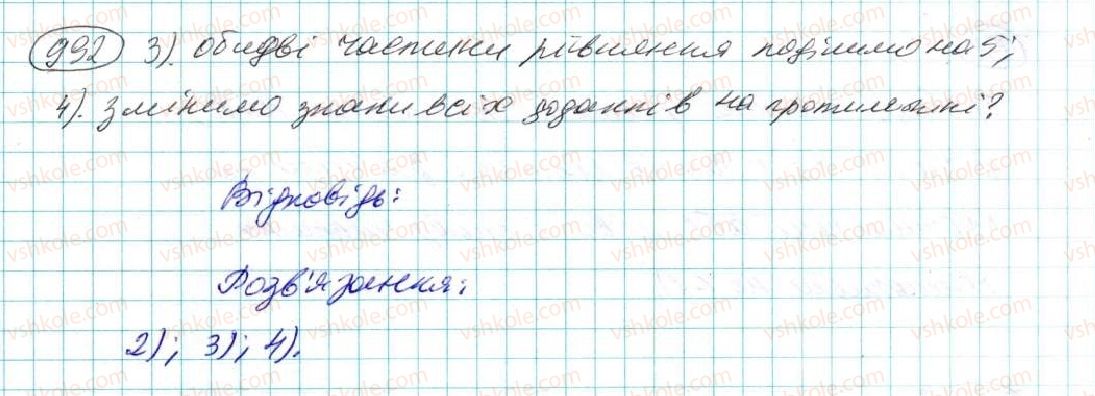 992 3). обидві частини рівняння поділимо на 5;
4). змінимо знаки всіх доданків на протилежні?
Відповідь:
Розв'язання:
2); 3); 4).